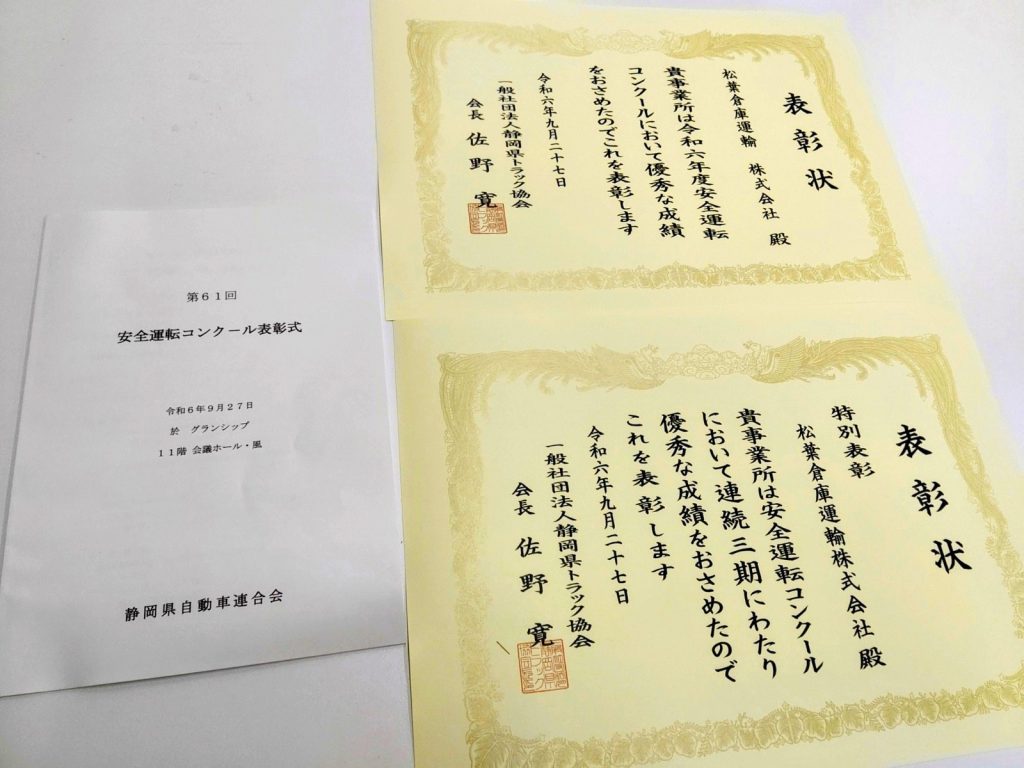 第６１回
安全運転コンクール表彰式
令和６年９月２７日
於　グランシップ
１１階 会議ホール・風
静岡県自動車連合会
表彰状
松葉倉庫運輸　株式会社　殿
貴事業所は令和六年度安全運転
コンクールにおいて優秀な成績
をおさめたのでこれを表彰します
令和六年九月二十七日
一般社団法人静岡県トラック協会
会長　佐野　寛
表彰状
特別表彰
松葉倉庫運輸株式会社　殿
貴事業所は安全運転コンクール
において連続三期にわたり
優秀な成績をおさめたので
これを表彰します
令和六年九月二十七日
一般社団法人静岡県トラック協会
会長　佐野　寛